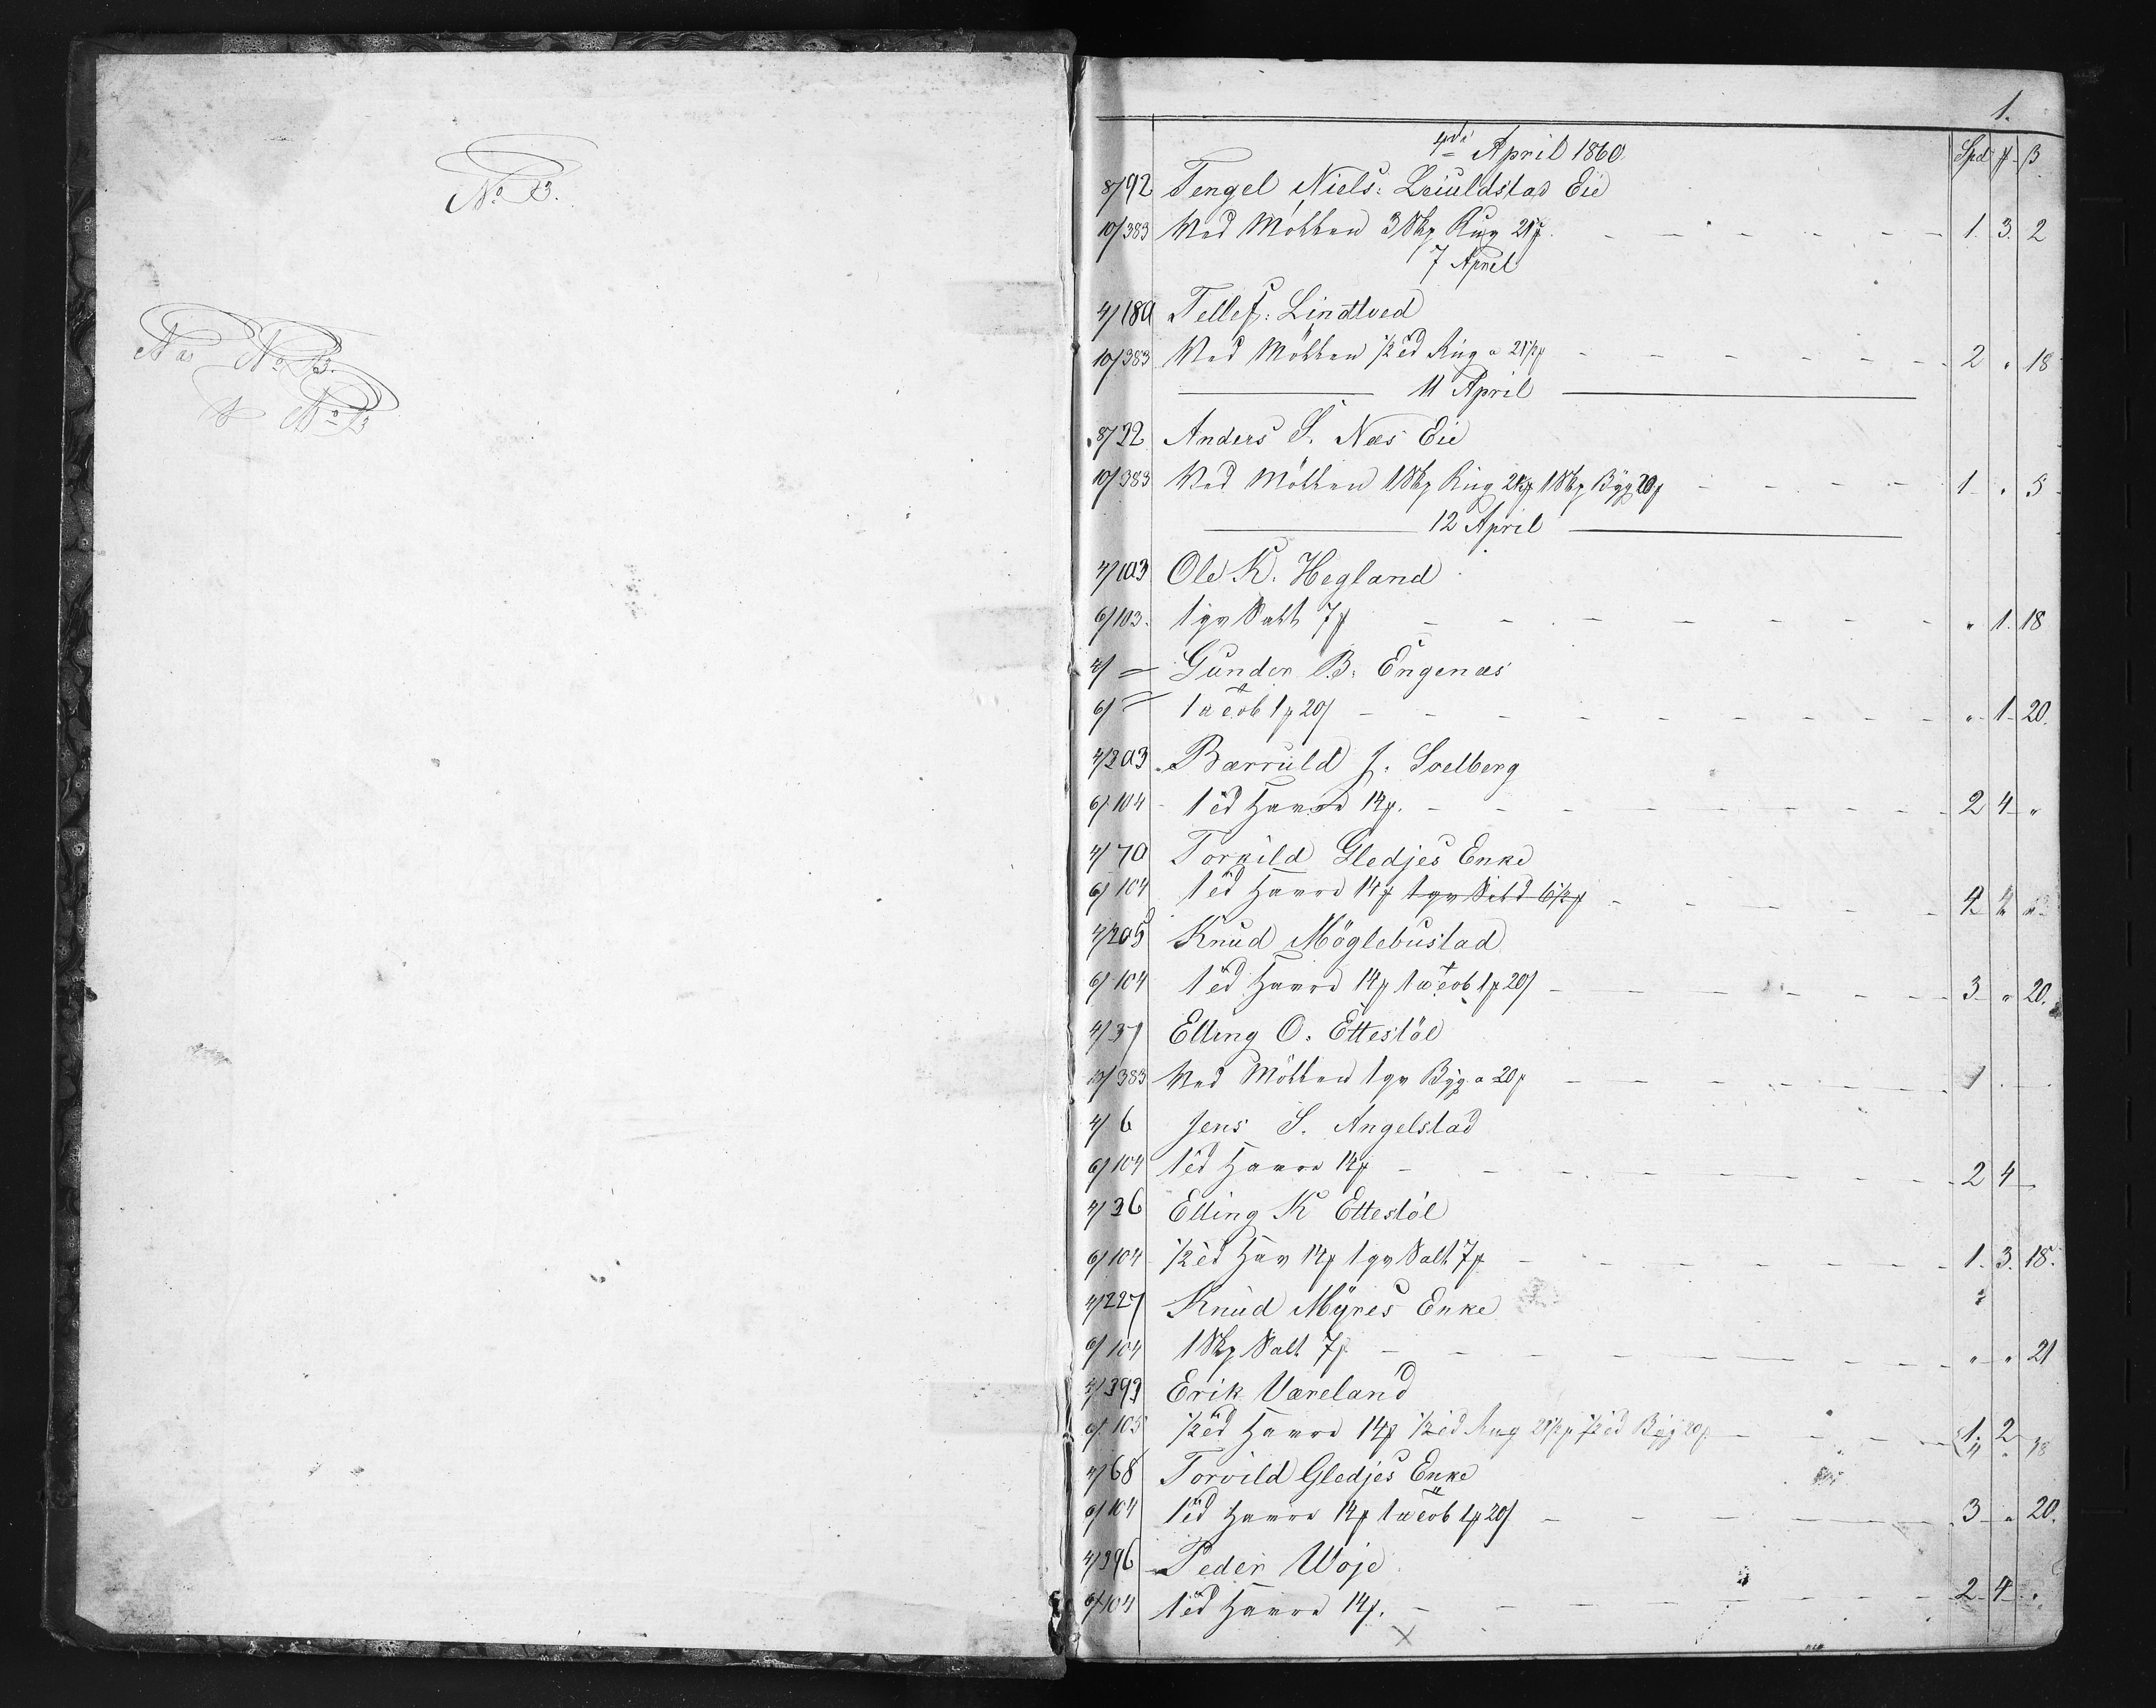 No 13.
Næs No 13.
No 13
1.
4de April 1860.
Spd ꝟ β
8/92 Tengel Niels: Leiuldstad Eie
10/383 Ved Möllen 3 Skp Rug 21ꝟ 1. 3. 2
7 April
4/189 Tellef: Lindtved
10/383 Ved Möllen ½ td Rug a 21½ꝟ 2 " 18
11 April
8/32 Anders S. Næs Eie
10/383 Ved Möllen 1 Skp Rug 21ꝟ 1 Skp Byg 20ꝟ 1 " 5
12 April
4/103 Ole K. Hegland
6/103. 1 qr Salt 7ꝟ " 1. 18
4/ = Gunder B: Engenæs
6/ = 1 20β " 1 20.
4/303 Barruld J: Soelberg
6/104 1 td Havre 14ꝟ. 2 4 "
4/70 Torvild Gledjes Enke
6/104 1 td Havre 14ꝟ
4/205 Knud Möglebustad
6/104 1 td Havre 14ꝟ 20β 3 " 20.
4/37 Elling O. Ettestöl
10/383 Ved Möllen 1 qr Byg a 20ꝟ 1
4/6 Jens S. Angelstad
6/104 1 td Havre 14ꝟ 2 4
4/36 Elling K Ettestöl
6/104 ½ td Hav 14ꝟ 1 qr Salt 7ꝟ 1. 3. 18.
4/227 Knud Myres Enke
6/104 1 Skp Salt 7ꝟ " " 21
4/393 Erik Væreland
6/105 ½ td Havre 14ꝟ ½ td Rug 21½ꝟ ½ td Byg 20ꝟ
4/68 Torvild Gledjes Enke
6/104 1 td Havre 14ꝟ 20β 3 " 20.
4/396 Peder Woje
6/104 1 td Havre 14ꝟ. 2 4 "